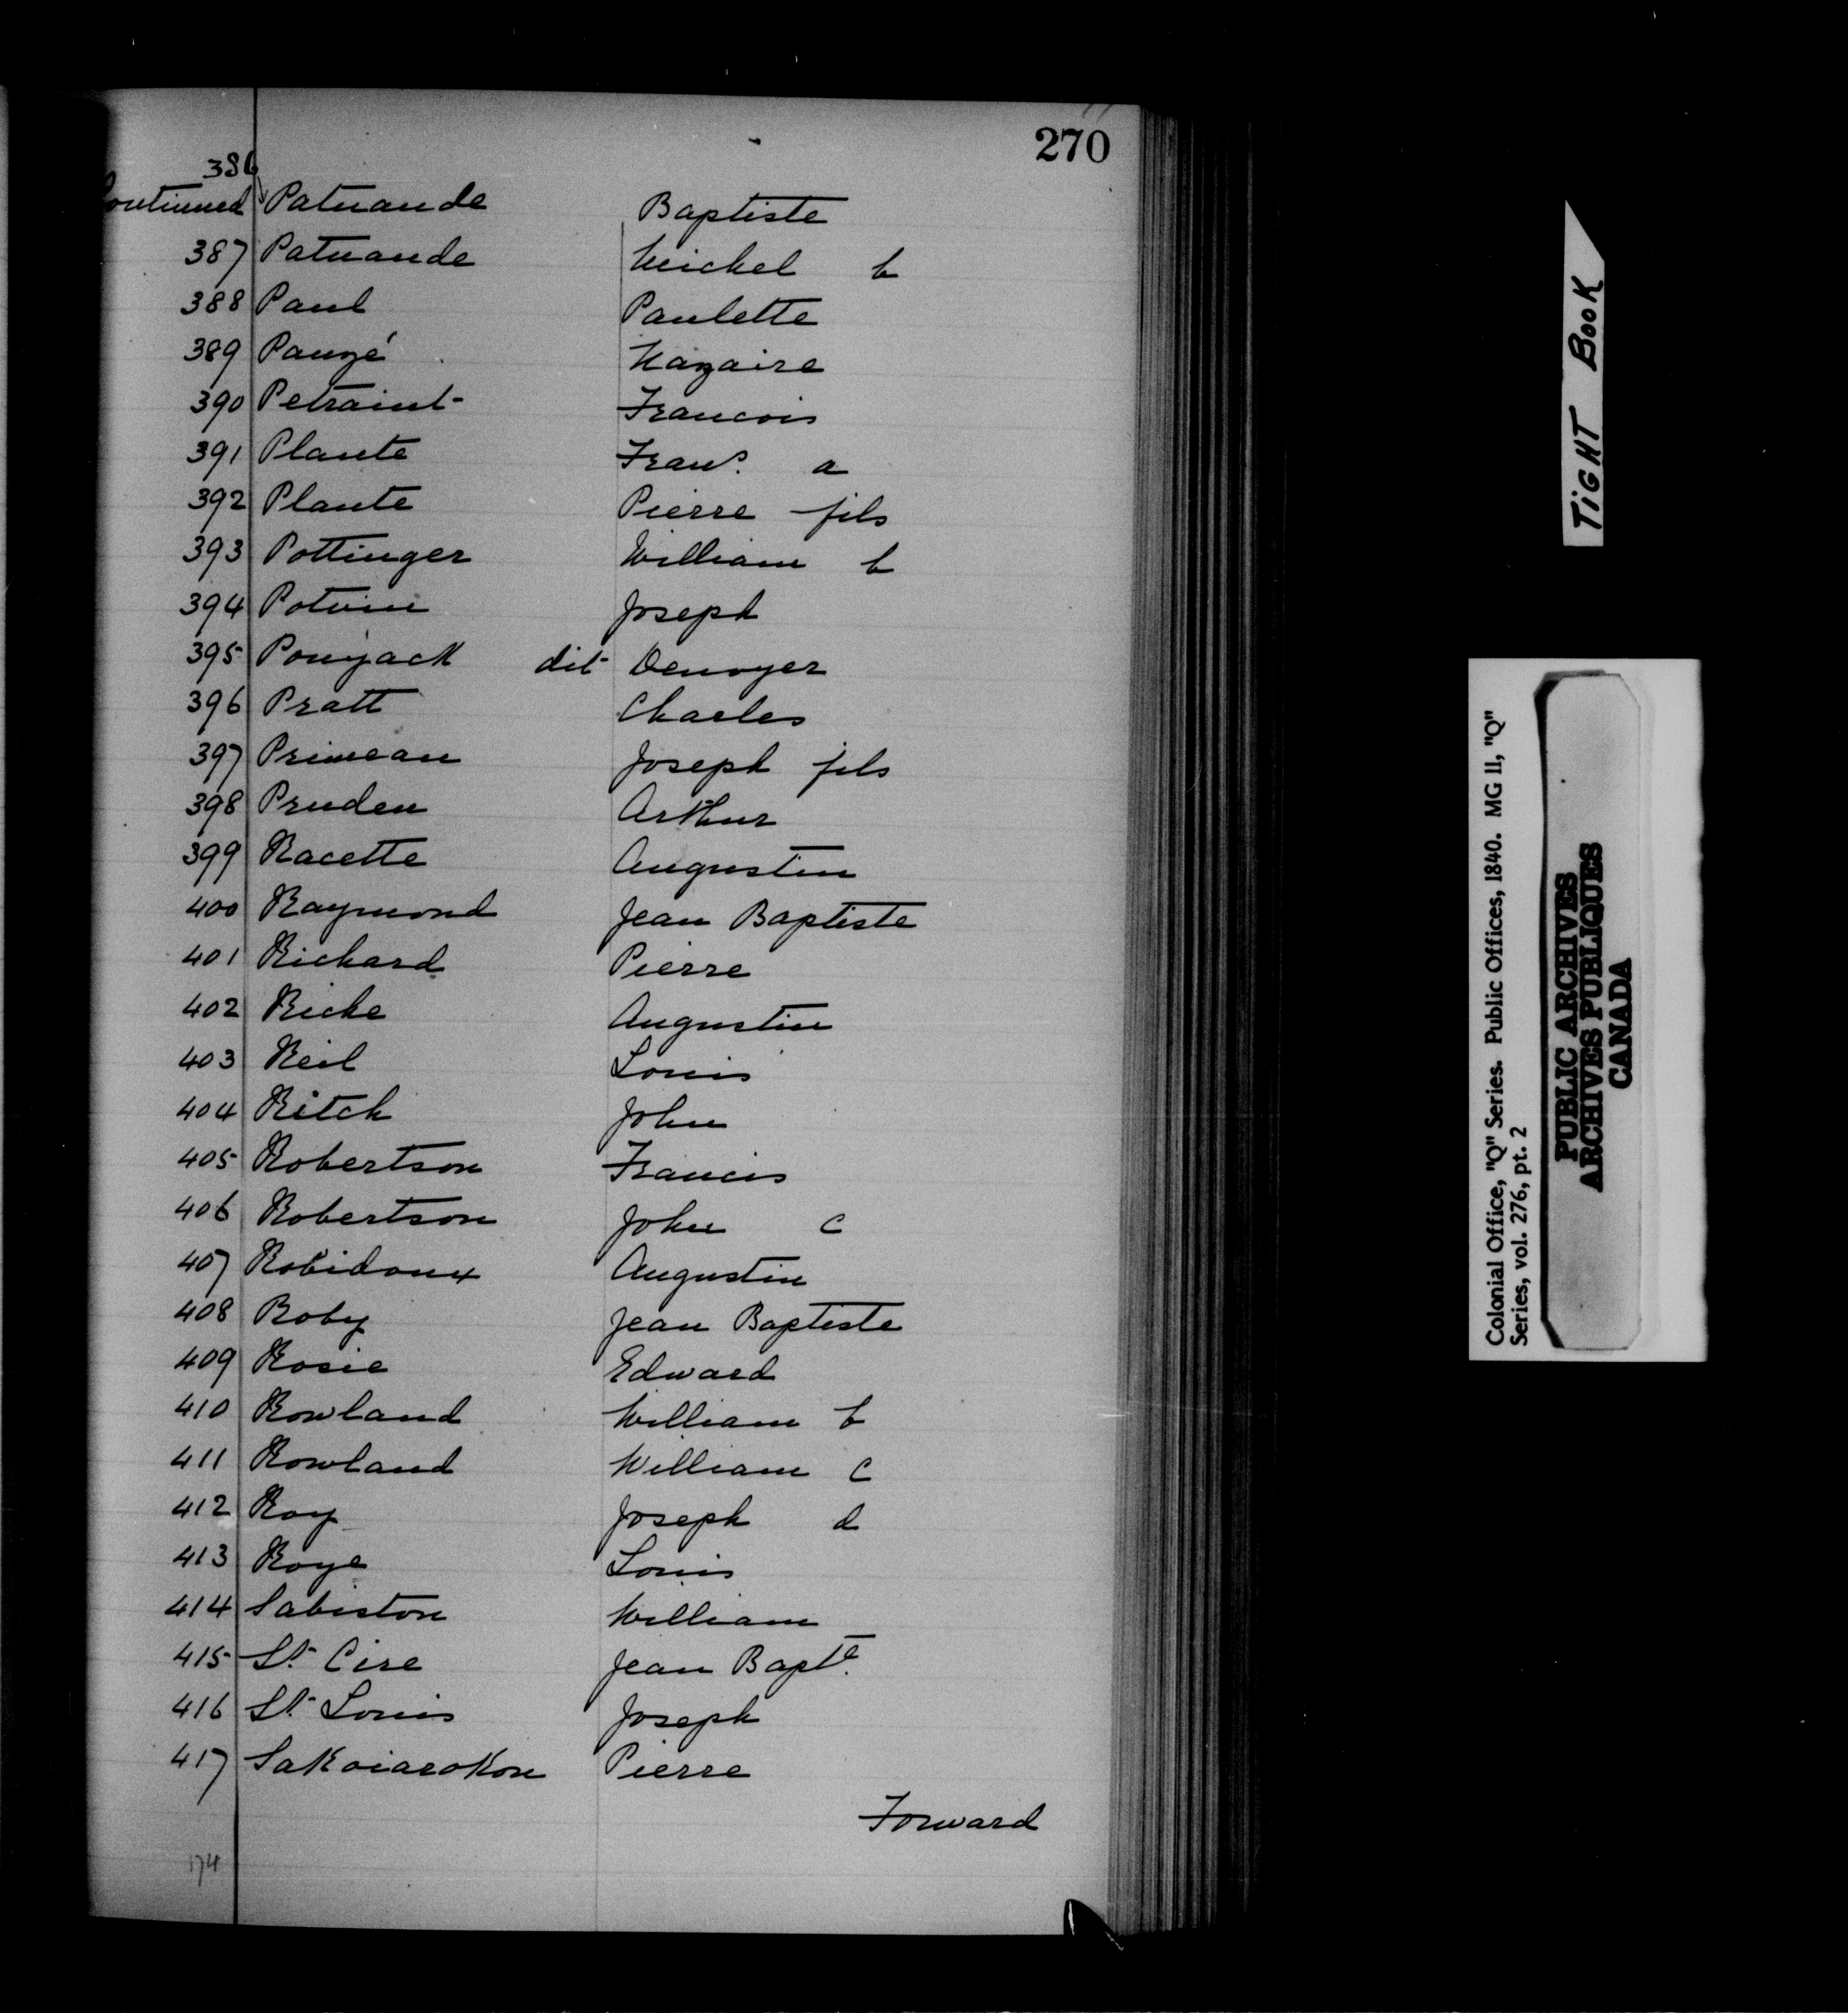 270
386
Continued Patnande Baptiste
387 Patnande Michel b
388 Paul Paulette
389 Pauzé Nazaire
390 Petraint Francois
391 Plante Frans. a
392 Plante Pierre fils
393 Pottinger William b
394 Potvin Joseph
395 Pouyack dit Denoyer
396 Pratt Charles
397 Primeau Joseph fils
398 Pruden Arthur
399 Racette Augustin
400 Raymond Jean Baptiste
401 Richard Pierre
402 Riche Augustin
403 Reil Louis
404 Ritch John
405 Robertson Francis
406 Robertson John c
407 Robidoux Augustin
408 Roby Jean Baptiste
409 Rosie Edward
410 Rowland William b
411 Rowland William c
412 Roy Joseph d
413 Roye Louis
414 Sabiston William
415 St. Cire Jean Bapte.
416 St. Louis Joseph
417 Sakoiarokon Pierre
Forward
174
TIGHT BOOK
Colonial Office, "Q" Series. Public Offices, 1840. MG 11, "Q"
Series, vol. 276, pt. 2
PUBLIC ARCHIVES
ARCHIVES PUBLIQUES
CANADA